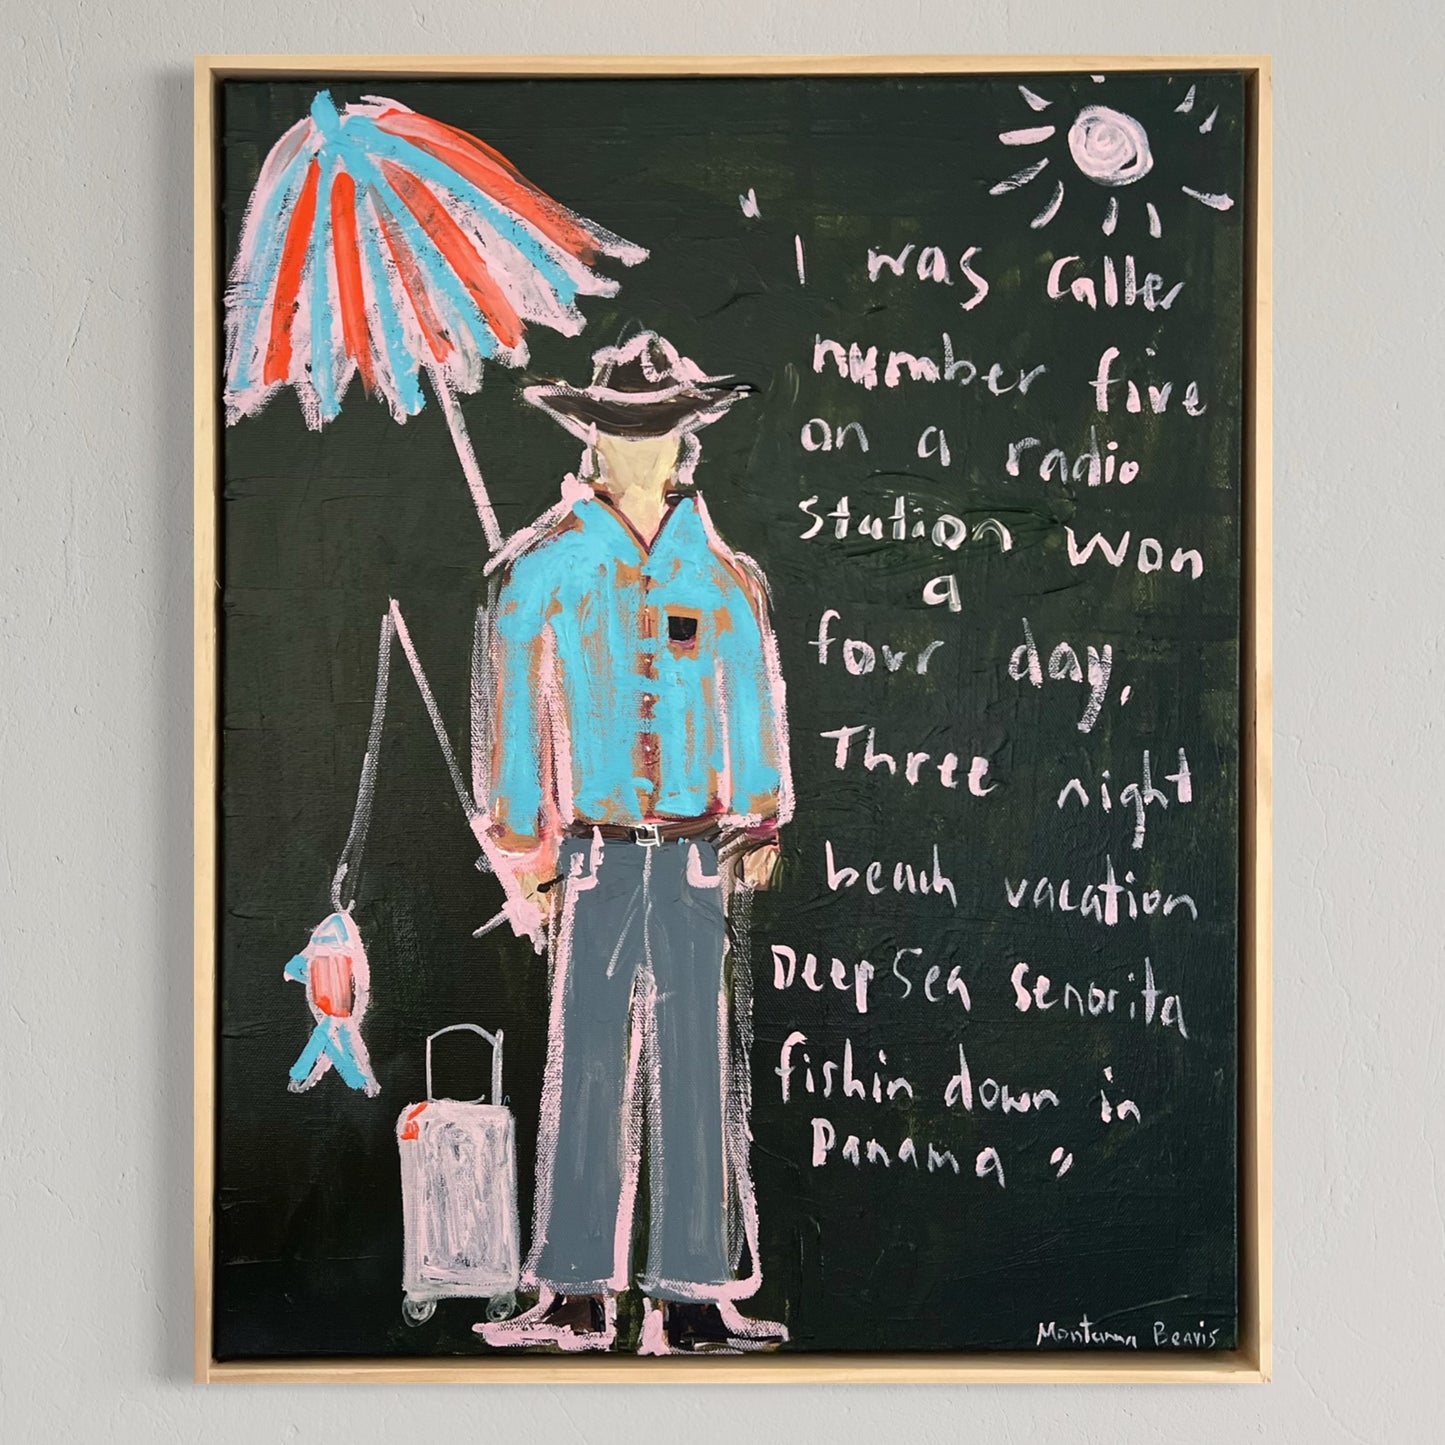 "
I was Caller
number five
on a radio
Station won
a
four day,
Three night
beach vacation
Deep Sea Senorita
fishin down in
Panama "
Montanna Beavis